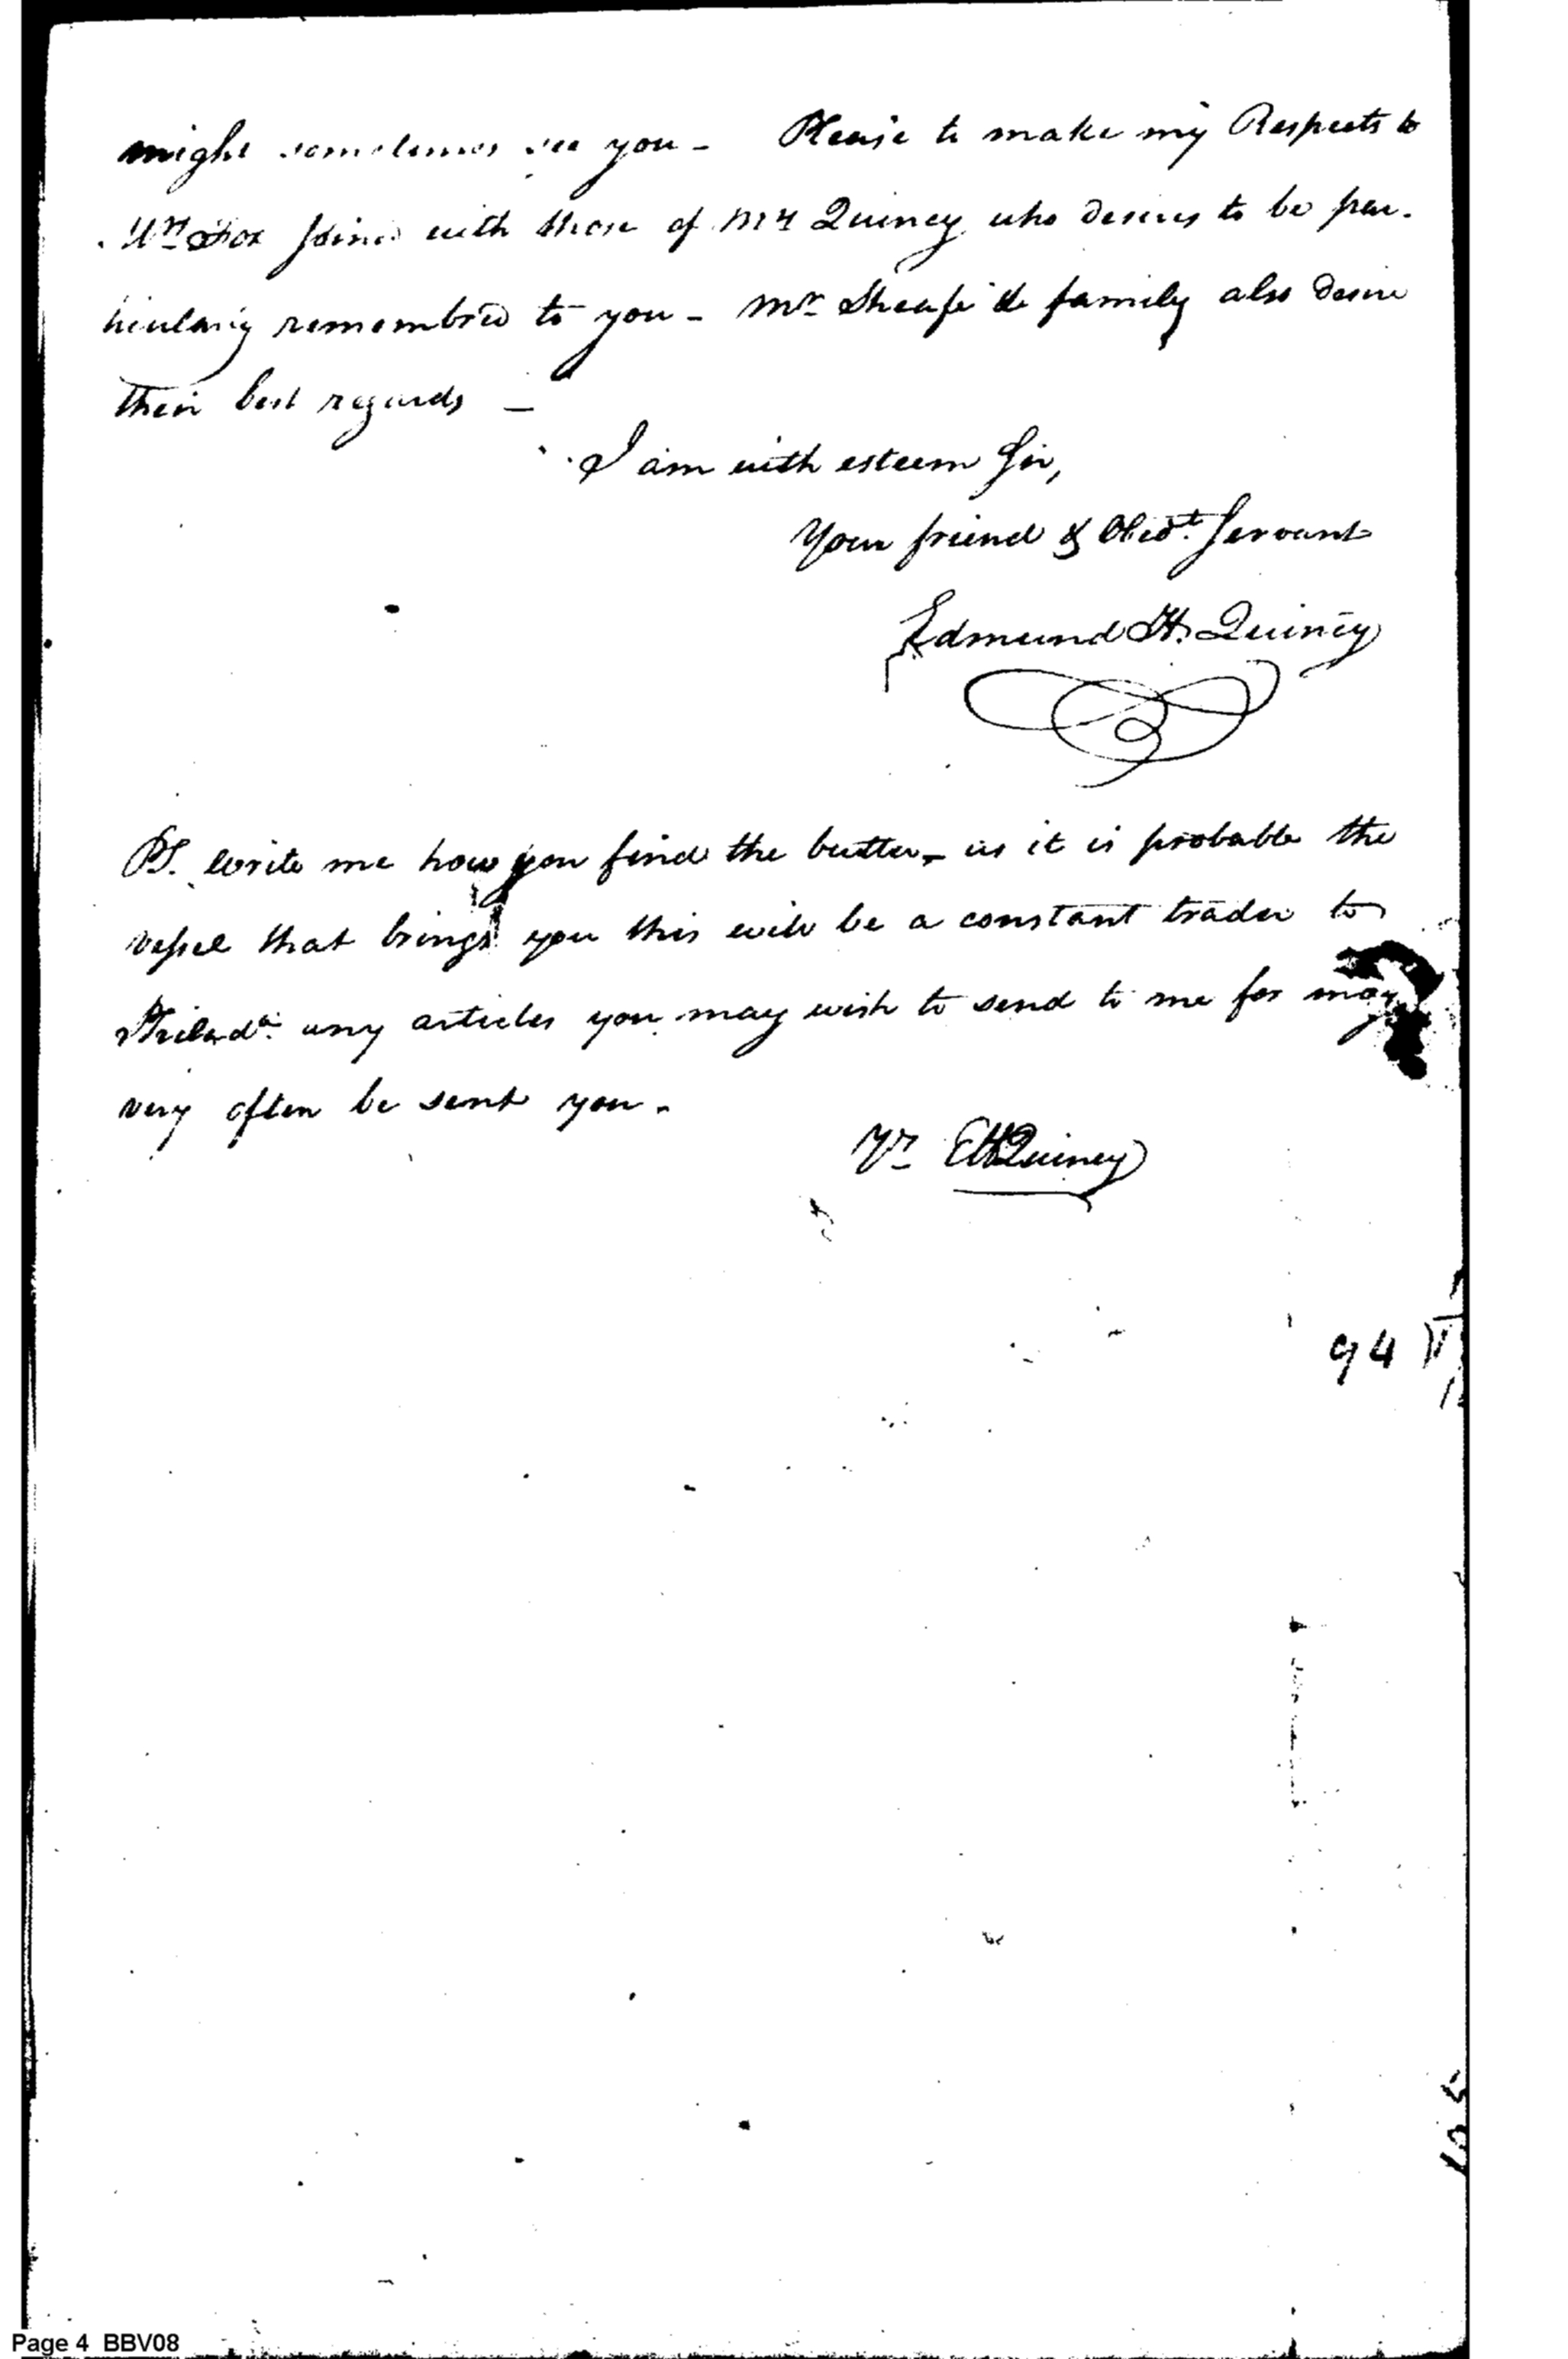 might sometimes see you - Please to make my Respects to
Mrs Fox Joined with those of Mrs Quincy who desires to be par-
ticularly remembred to you - Mr Sheafe & family also desire
their best regards -
I am with esteem Sir,
Your friend & Obedt. Servant
Edmund H. Quincy
PS. write me how you find the butter - as it is probable the
vessel that brings you this will be a constant trader to
Philada. any articles you may wish to send to me for may
very often be sent you -
Yr EHQuincy
94
Page 4 BBV08